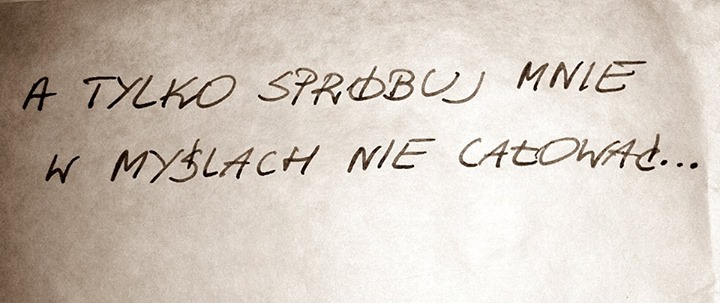 A TYLKO SPRÓBUJ MNIE
W MYŚLACH NIE CAŁOWAĆ...